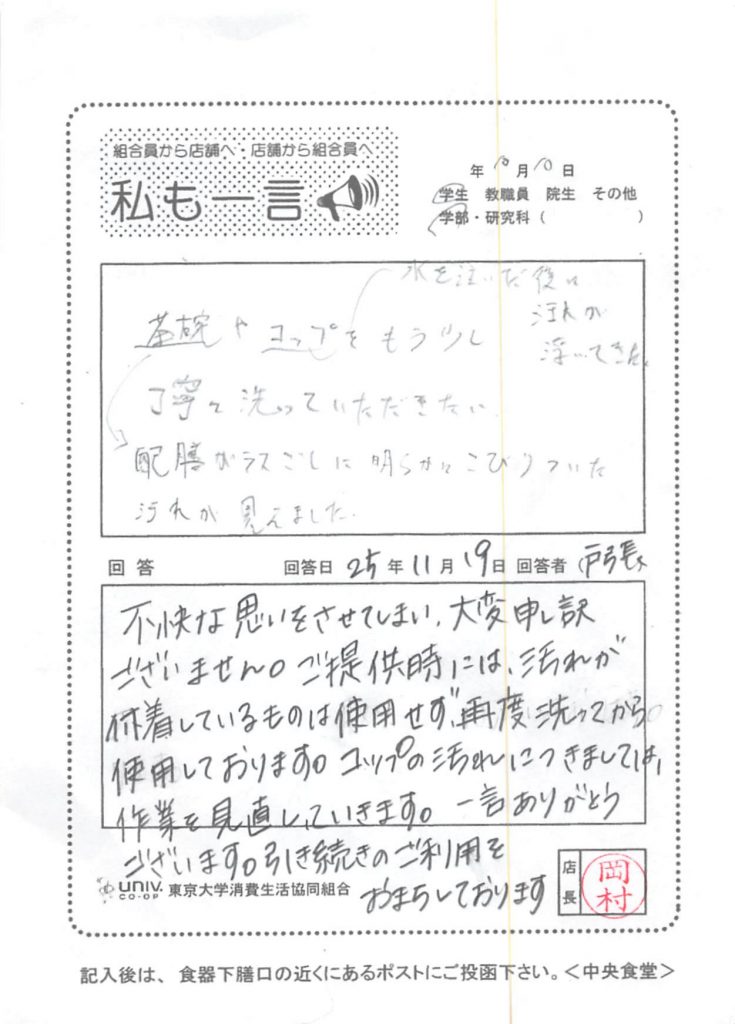 組合員から店舗へ・店舗から組合員へ
私も一言
年 10月 10日
学生 教職員 院生 その他
学部・研究科 ( )
水を注いだ後に
汚れが
浮いてきた。
茶碗や コップを もう少し
丁寧に 洗っていただきたい。
配膳ガラスごしに 明らかに こびりついた
汚れが 見えました。
回 答 回答日 25年 11月 19日 回答者
不快な思いをさせてしまい、大変申し訳
ございません。ご提供時には、汚れが
付着しているものは使用せず、再度洗ってから
使用しております。コップの汚れにつきましては、
作業を見直していきます。一言ありがとう
ございます。引き続きのご利用を
おまちしております
UNIV. CO-OP 東京大学消費生活協同組合
店長
岡村
記入後は、食器下膳口の近くにあるポストにご投函下さい。＜中央食堂＞